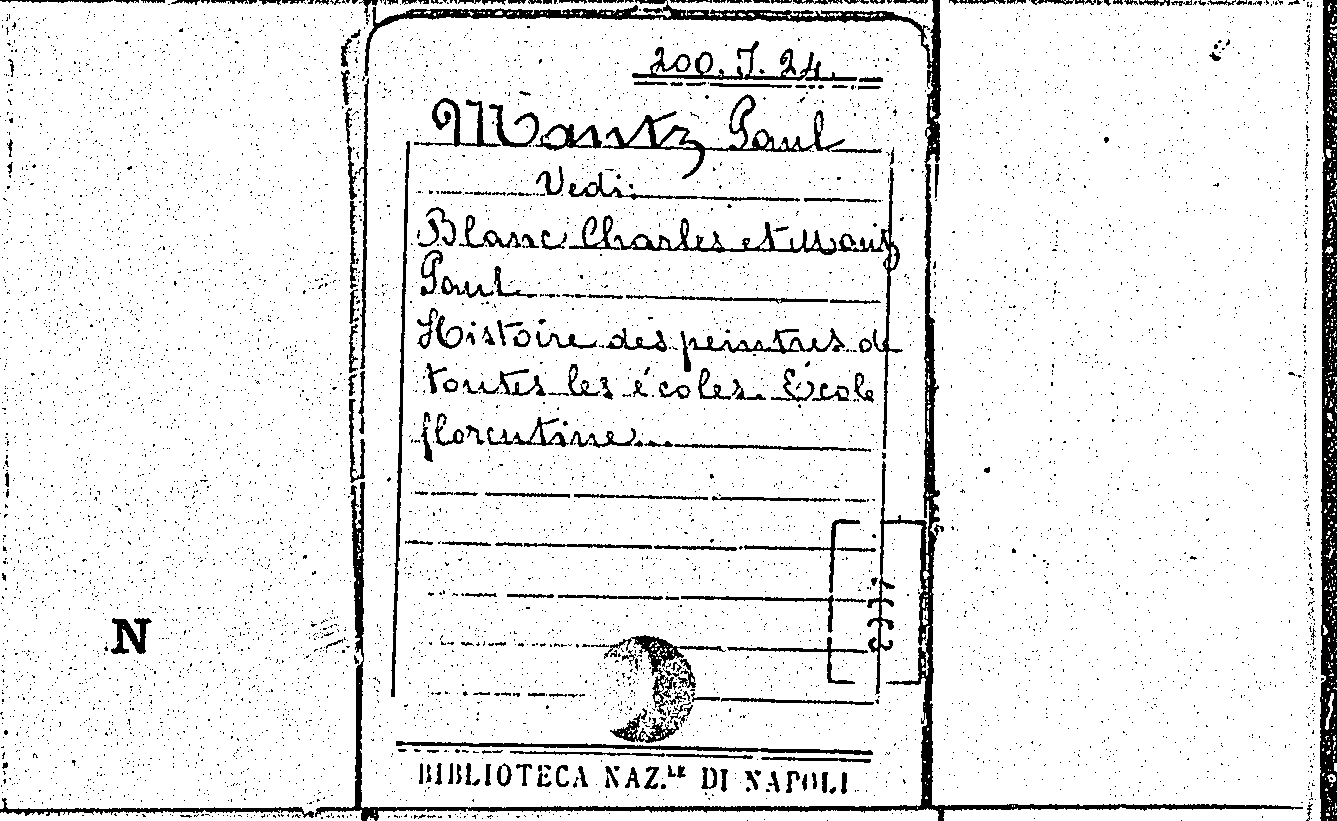 200. J. 24.
Mantz Paul
Vedi:
Blanc Charles et Mantz
Paul
Histoire des peintres de
toutes les écoles. École
florentine...
N
BIBLIOTECA NAZ.LE DI NAPOLI